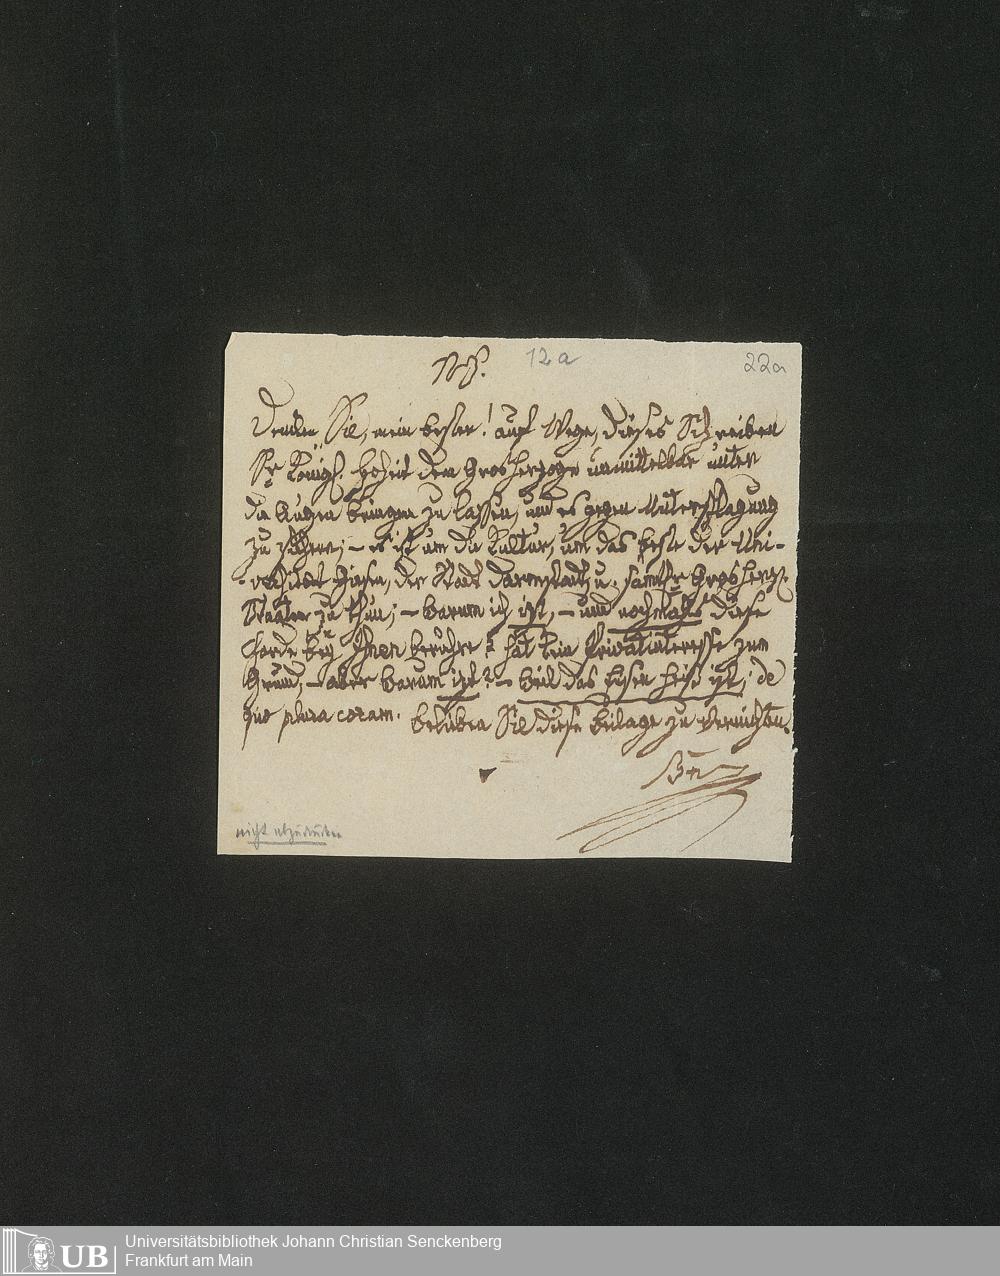 NS. 12a 22a
Denken Sie, mein bester! auf Wege, dieses Schreiben
Sr Königl. Hoheit dem Grosherzoge unmittelbar unter
die Augen bringen zu lassen, und es gegen Unterschlagung
zu sichern; – es ist um die Kultur, um das beste der Uni-
versitaet Giesen, der Stadt Darmstadt, u. samtlr Grosherzl.
Staaten zu thun; – warum ich izt, – und nochmals diese
Chorde beÿ Ihnen berühre? hat kein Privatinteresse zum
Grund, – aber warum izt? – weil das Eisen heise ist; de
quo plura coram. belieben Sie diese beilage zu vernichten.
nicht abzudrucken
UB
Universitätsbibliothek Johann Christian Senckenberg
Frankfurt am Main